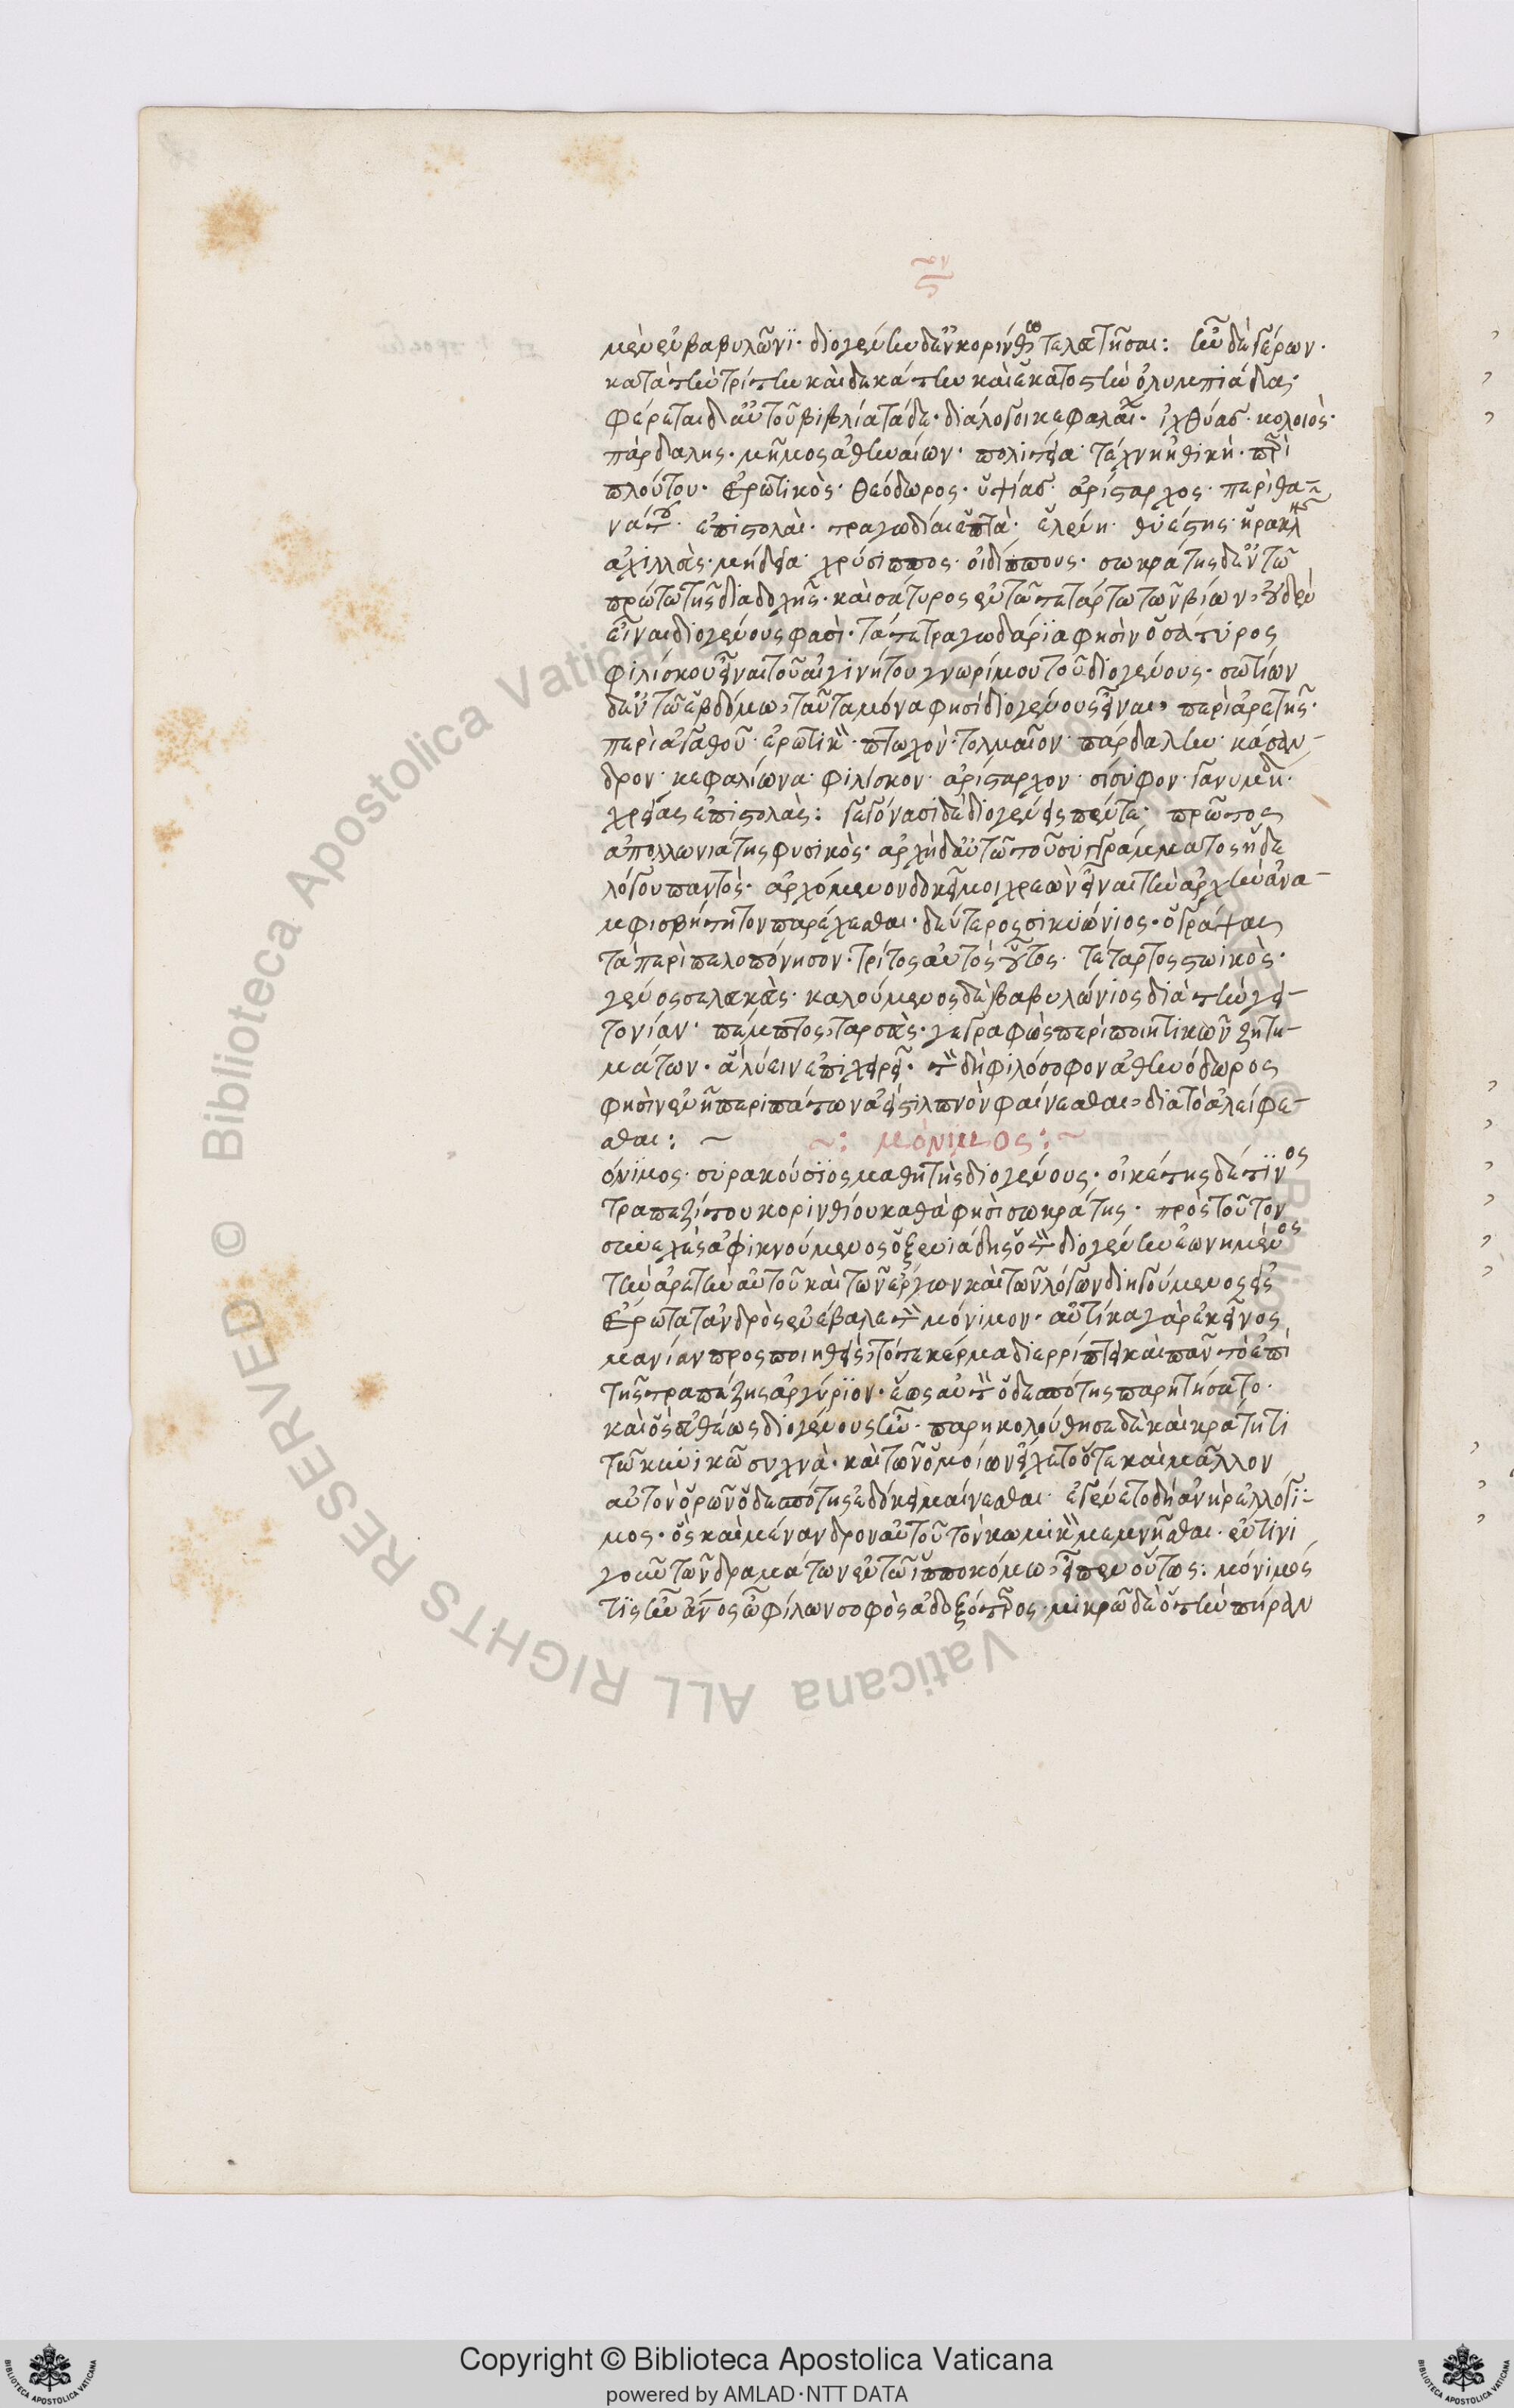 μὲν ἐν βαβυλῶνϊ· διογένην δ' ἐν κορίνθω τελευτῆσαι: ἦν δὲ γέρων·
κατὰ τὴν τρίτην καὶ δεκάτην καὶ ἑκατοστὴν ὀλυμπιάδα·
φέρεται δ' αὐτοῦ βιβλία τάδε· διάλογοι κεφαλαί· ἰχθύας· κολοιὸς·
πάρδαλης· μῆμος ἀθηναίων· πολιτεία· τέχνη ἠθικὴ· περὶ
πλούτου· ἐρωτικὸς· θεόδωρος· ὑψίας· ἀρίσταρχος· περὶ θα-
νάτου· ἐπιστολαὶ· τραγωδίαι ἑπτὰ· ἑλένη· θυέστης· ἡρακλῆς
ἀχιλλὲς· μήδεια· χρύσιππος· οἰδίππους· σωκράτης δ' ἐν τῶ
πρώτω τῆς διαδοχῆς· καὶ σάτυρος ἐν τῶ τετάρτω τῶν βίων, οὐδὲν
εἶναι διογένους φασὶ· τά τε τραγωδάρϊα φησὶν ὁ σάτυρος
φιλίσκου εἶναι τοῦ αἰγινήτου γνωρίμου τοῦ διογένους· σωτίων
δ' ἐν τῶ ἑβδόμω, ταῦτα μόνα φησὶ διογένους εἶναι, περὶ ἀρετῆς·
περὶ ἀγαθοῦ· ἐρωτικὸν· πτωχὸν· τολμαῖον· πάρδαλην· κάσαν-
δρον· κεφαλίωνα· φιλίσκον· ἀρίσταρχον· σίσυφον· γανυμήδην·
χρείας ἐπιστολὰς: γεγόνασι δὲ διογένεις πέντε· πρῶτος
ἀπολλωνιάτης φυσικὸς· ἀρχὴ δ' αὐτῶ τοῦ συγγράμματος ἥδε
λόγου παντὸς· ἀρχόμενον δοκεῖ μοι χρεὼν εἶναι τὴν ἀρχὴν ἀνα-
μφισβήτητον παρέχεσθαι· δεύτερος σικυώνιος· ὁ γράψας
τὰ περὶ πελοπόνησον· τρίτος αὐτὸς οὗτος· τέταρτος στωικὸς·
γένος σελευκεὺς· καλούμενος δὲ βαβυλώνιος διὰ τὴν γει-
τονίαν· πέμπτος, ταρσεὺς· γεγραφὼς περὶ ποιητικῶν ζητη-
μάτων· ἃ λύειν ἐπιχειρεῖ· τὸν δὴ φιλόσοφον ἀθηνόδωρος
φησὶν ἐν ῆ περιπάτων ἀεὶ στιλπνὸν φαίνεσθαι, διὰ τὸ ἀλείφε-
σθαι: ~ ~: μόνιμος: ~
όνϊμος· συρακούσϊος μαθητὴς διογένους· οἰκέτης δέ τϊνος
τραπεζίτου κορινθίου καθά φησὶ σωκράτης· πρὸς τοῦτον
συνεχὲς ἀφικνούμενος ὁ ξενιάδης ὁ τὸν διογένην ἐωνημένος
τὴν ἀρετὴν αὐτοῦ καὶ τῶν ἔργων καὶ τῶν λόγων διηγούμενος εἰς
ἔρωτα τἀνδρὸς ἐνέβαλε τὸν μόνιμον· αὐτίκα γὰρ ἐκεῖνος
μανίαν προσποιηθεὶς, τό τε κέρμα διερρίπτει καὶ πᾶν τὸ ἐπὶ
τῆς τραπέζης ἀργύρϊον· ἕως αὐτὸν ὁ δεσπότης παρητήσατο·
καὶ ὃς εὐθέως διογένους ἦν· παρηκολούθησε δὲ καὶ κράτητι
τῶ κυνικῶ συχνὰ· καὶ τῶν ὁμοίων εἴχετο ὅτε καὶ μᾶλλον
αὐτὸν ὁρῶν ὁ δεσπότης ἐδόκει μαίνεσθαι· ἐγένετο δὴ ἀνὴρ ἐλλόγι-
μος· ὃς καὶ μένανδρον αὐτοῦ τὸν κωμικὸν μεμνῆσθαι· ἐν τινι
γοῦν τῶν δραμάτων ἐν τῶ ἱπποκόμω, εἶπεν οὕτως: μόνιμός
τϊς ἦν ἄνος ὦ φίλων σοφὸς ἀδοξότερος· μικρῶ δὲ ὁ τὴν πήραν